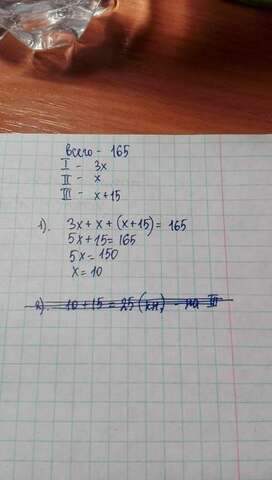 всего - 165
I - 3x
II - x
III - x+15
1). 3x + x + (x+15) = 165
5x + 15 = 165
5x = 150
x = 10
2). 10 + 15 = 25 (кн) - на III